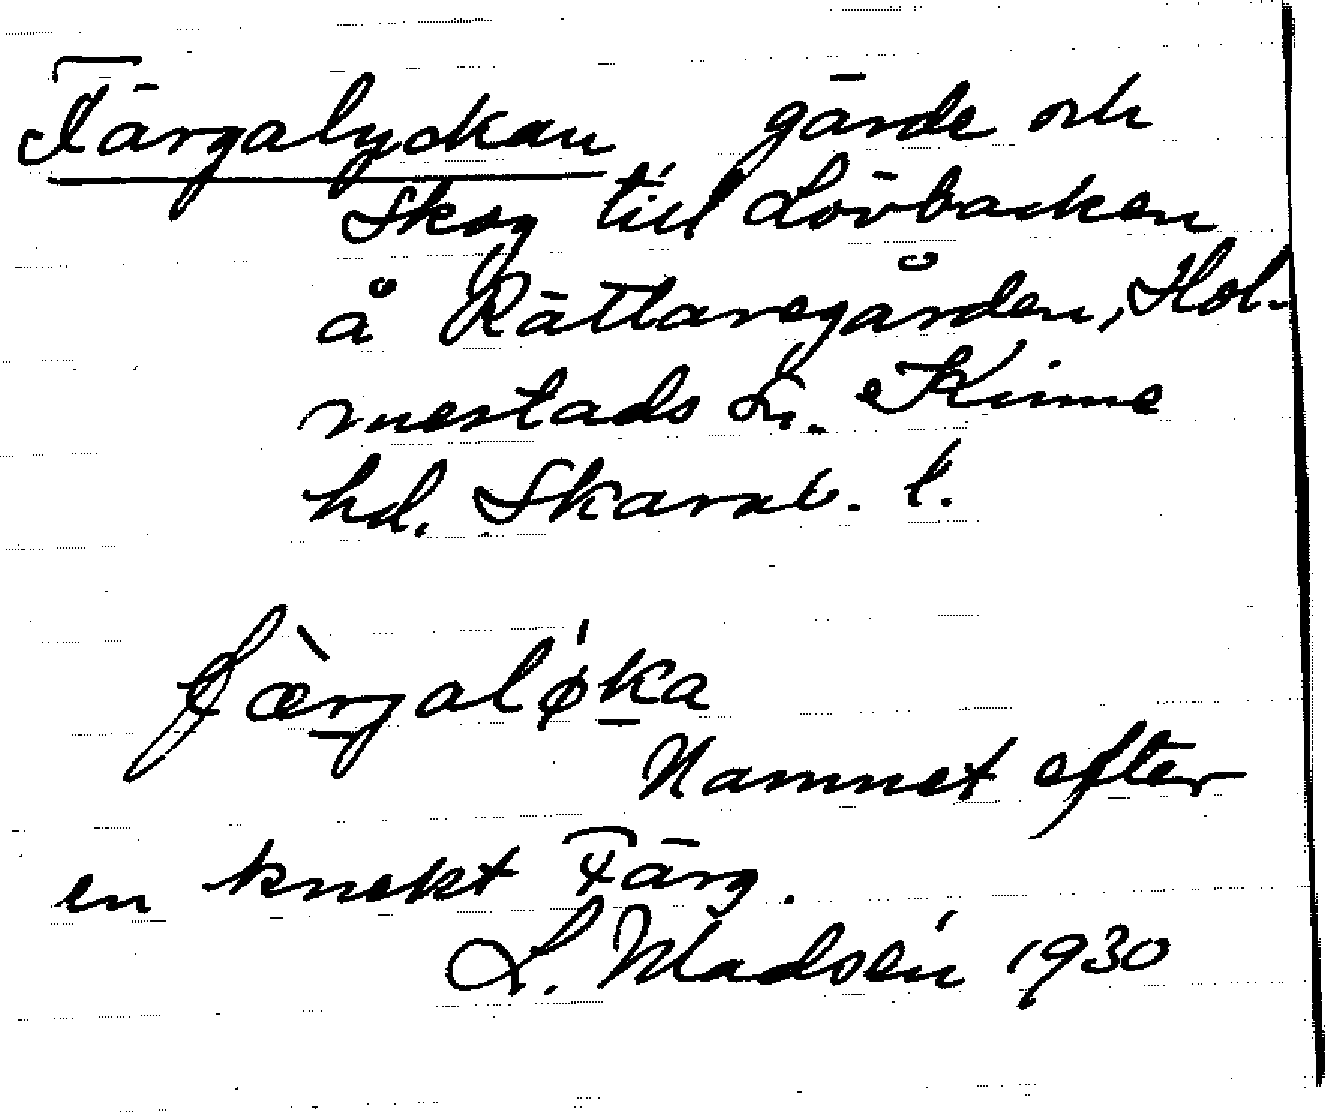 Färgalyckan gärde och
skog till Lövbacken
å Rättaregården, Hol-
mestads sn. Kinne
hd. Skarab. l.
fæ̀rgalǿka
Namnet efter
en knekt Färg.
L. Madsén 1930